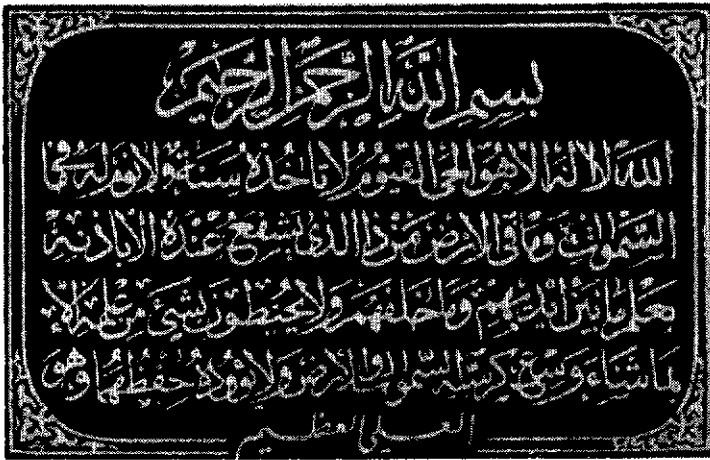 بسم الله الرحمن الرحيم
الله لا إله إلا هو الحي القيوم لا تأخذه سنة ولا نوم له ما في
السموات وما في الأرض من ذا الذي يشفع عنده إلا بإذنه
يعلم ما بين أيديهم وما خلفهم ولا يحيطون بشيء من علمه إلا
بما شاء وسع كرسيه السموات والأرض ولا يؤوده حفظهما وهو
العلي العظيم